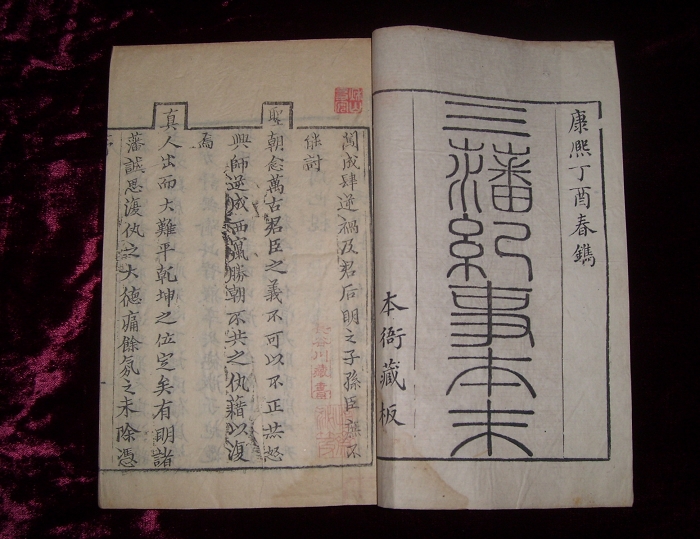 康熙丁酉春鐫
三藩紀事本末
本衙藏板
闖成肆逆禍及君后明之子孫臣庶不
討
聖朝念萬古君臣之義不可以不正赫怒
興師逆成西竄勝朝不共之仇藉以復
焉
真人出而大難平乾坤之位定矣有明諸
藩誠思復仇之大德痛餘氛之未除憑
長谷川藏書